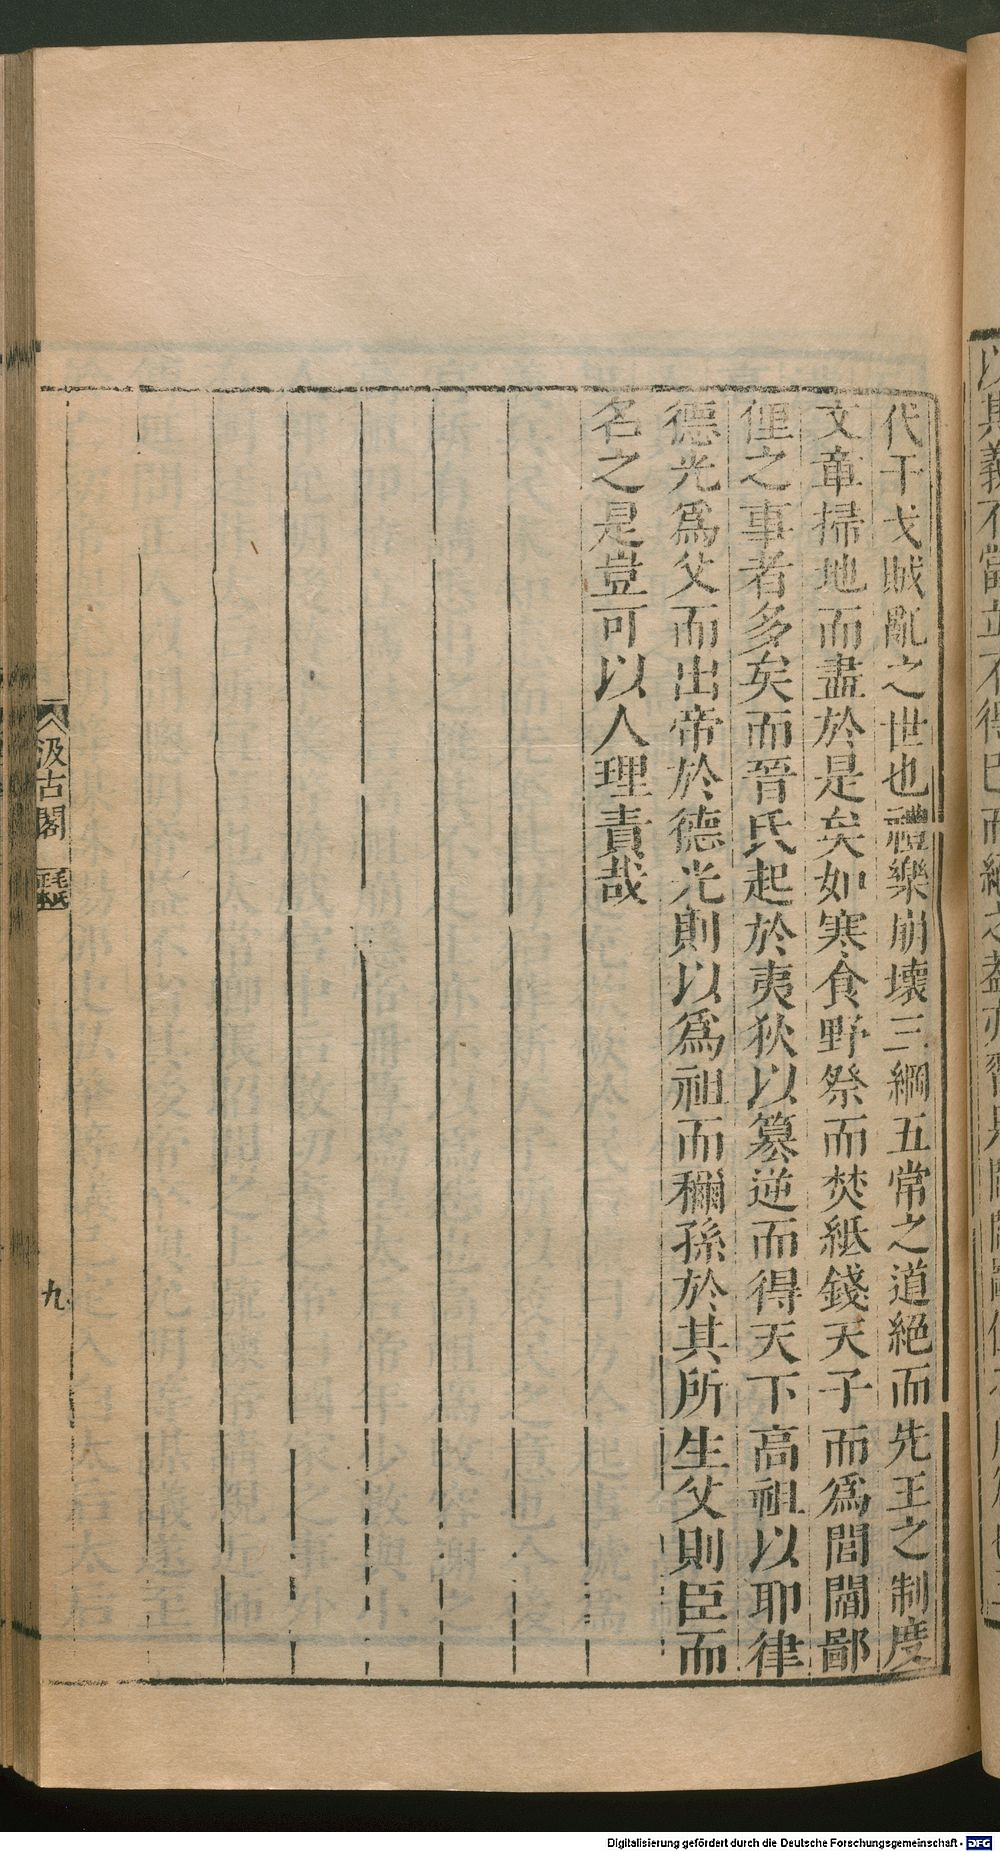 代干戈賊亂之世也禮樂崩壞三綱五常之道絕而先王之制度
文章掃地而盡於是矣如寒食野祭而焚紙錢天子而爲閭閻鄙
俚之事者多矣而晉氏起於夷狄以篡逆而得天下高祖以耶律
德光爲父而出帝於德光則以爲祖而稱孫於其所生父則臣而
名之是豈可以人理責哉
汲古閣
毛氏正本
九
Digitalisierung gefördert durch die Deutsche Forschungsgemeinschaft - DFG